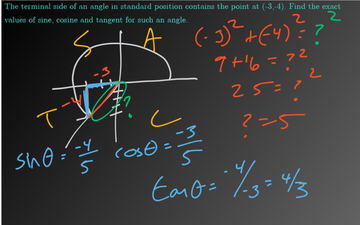 The terminal side of an angle in standard position contains the point at (-3,-4). Find the exact
values of sine, cosine and tangent for such an angle.
S A
T C
-3
-4
?
(-3)² + (-4)² = ?²
9 + 16 = ?²
25 = ?²
? = 5
sin θ = -4/5
cos θ = -3/5
tan θ = -4/-3 = 4/3